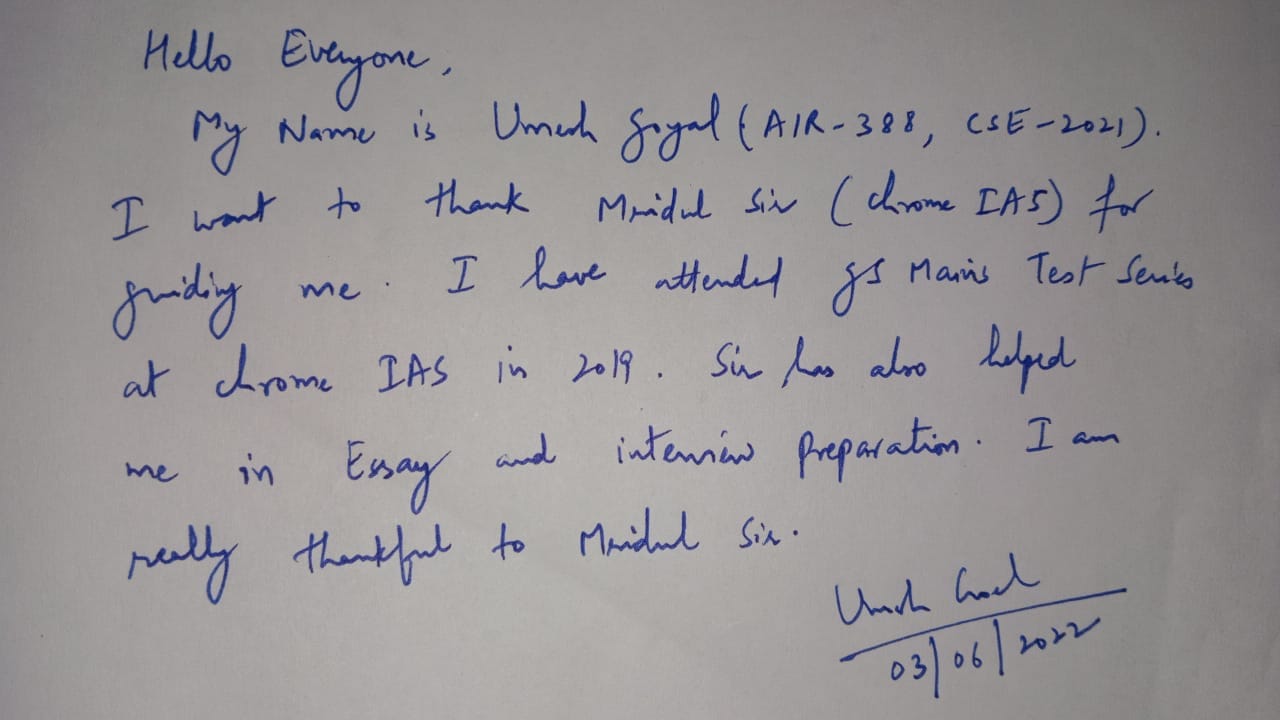 Hello Everyone,
My Name is Umesh Goyal (AIR-388, CSE-2021).
I want to thank Mridul Sir (chrome IAS) for
guiding me. I have attended GS Mains Test Series
at chrome IAS in 2019. Sir has also helped
me in Essay and interview preparation. I am
really thankful to Mridul Sir.
Umesh Goel
03/06/2022